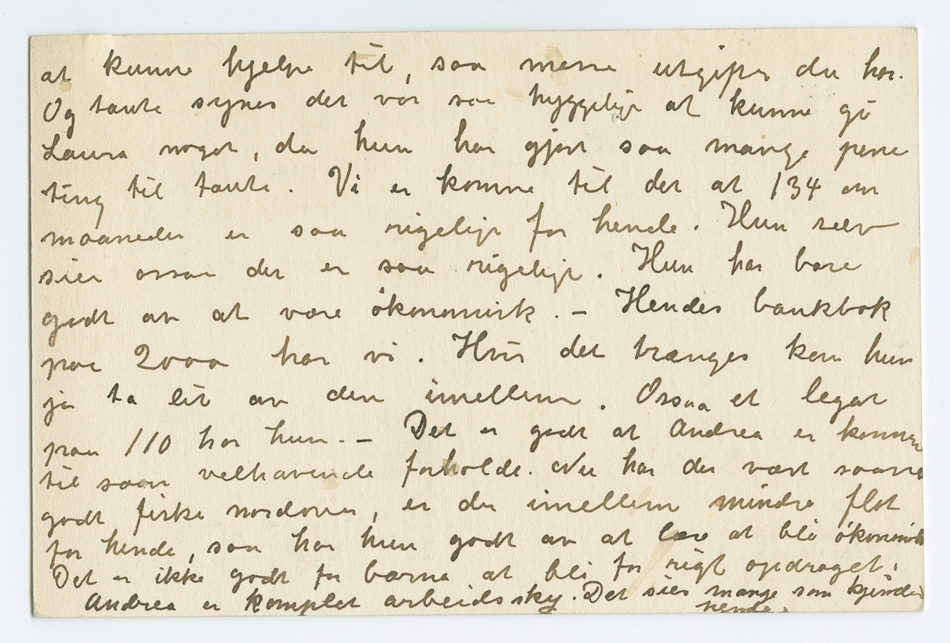 at kunne hjelpe til, saa mene utgifter du har.
Og tante synes det var saa hyggelige at kunne gi
Laura noget, da hun har gjort saa mange pene
ting til tante. Vi er komne til det at 134 om
maaneden er saa rigelige for hende. Hun selv
sier ossaa det er saa rigelige. Hun har bare
godt av at være ökonomisk. – Hendes bankbok
paa 2000 har vi. Hvis det trænges kan hun
jo ta lit av den imellem. Ossaa et legat
paa 110 har hun. – Det er godt at Andrea er kommen
til saan velhavende forholde. Nu har der vært saa
godt fiske nordover, er der imellem mindre flot
for hende, saa har hun godt av at lære at bli ökonomisk
Det er ikke godt for barna at bli for rigt opdraget.
Andrea er komplet arbeidssky. Det sies mange som kjender
hende.